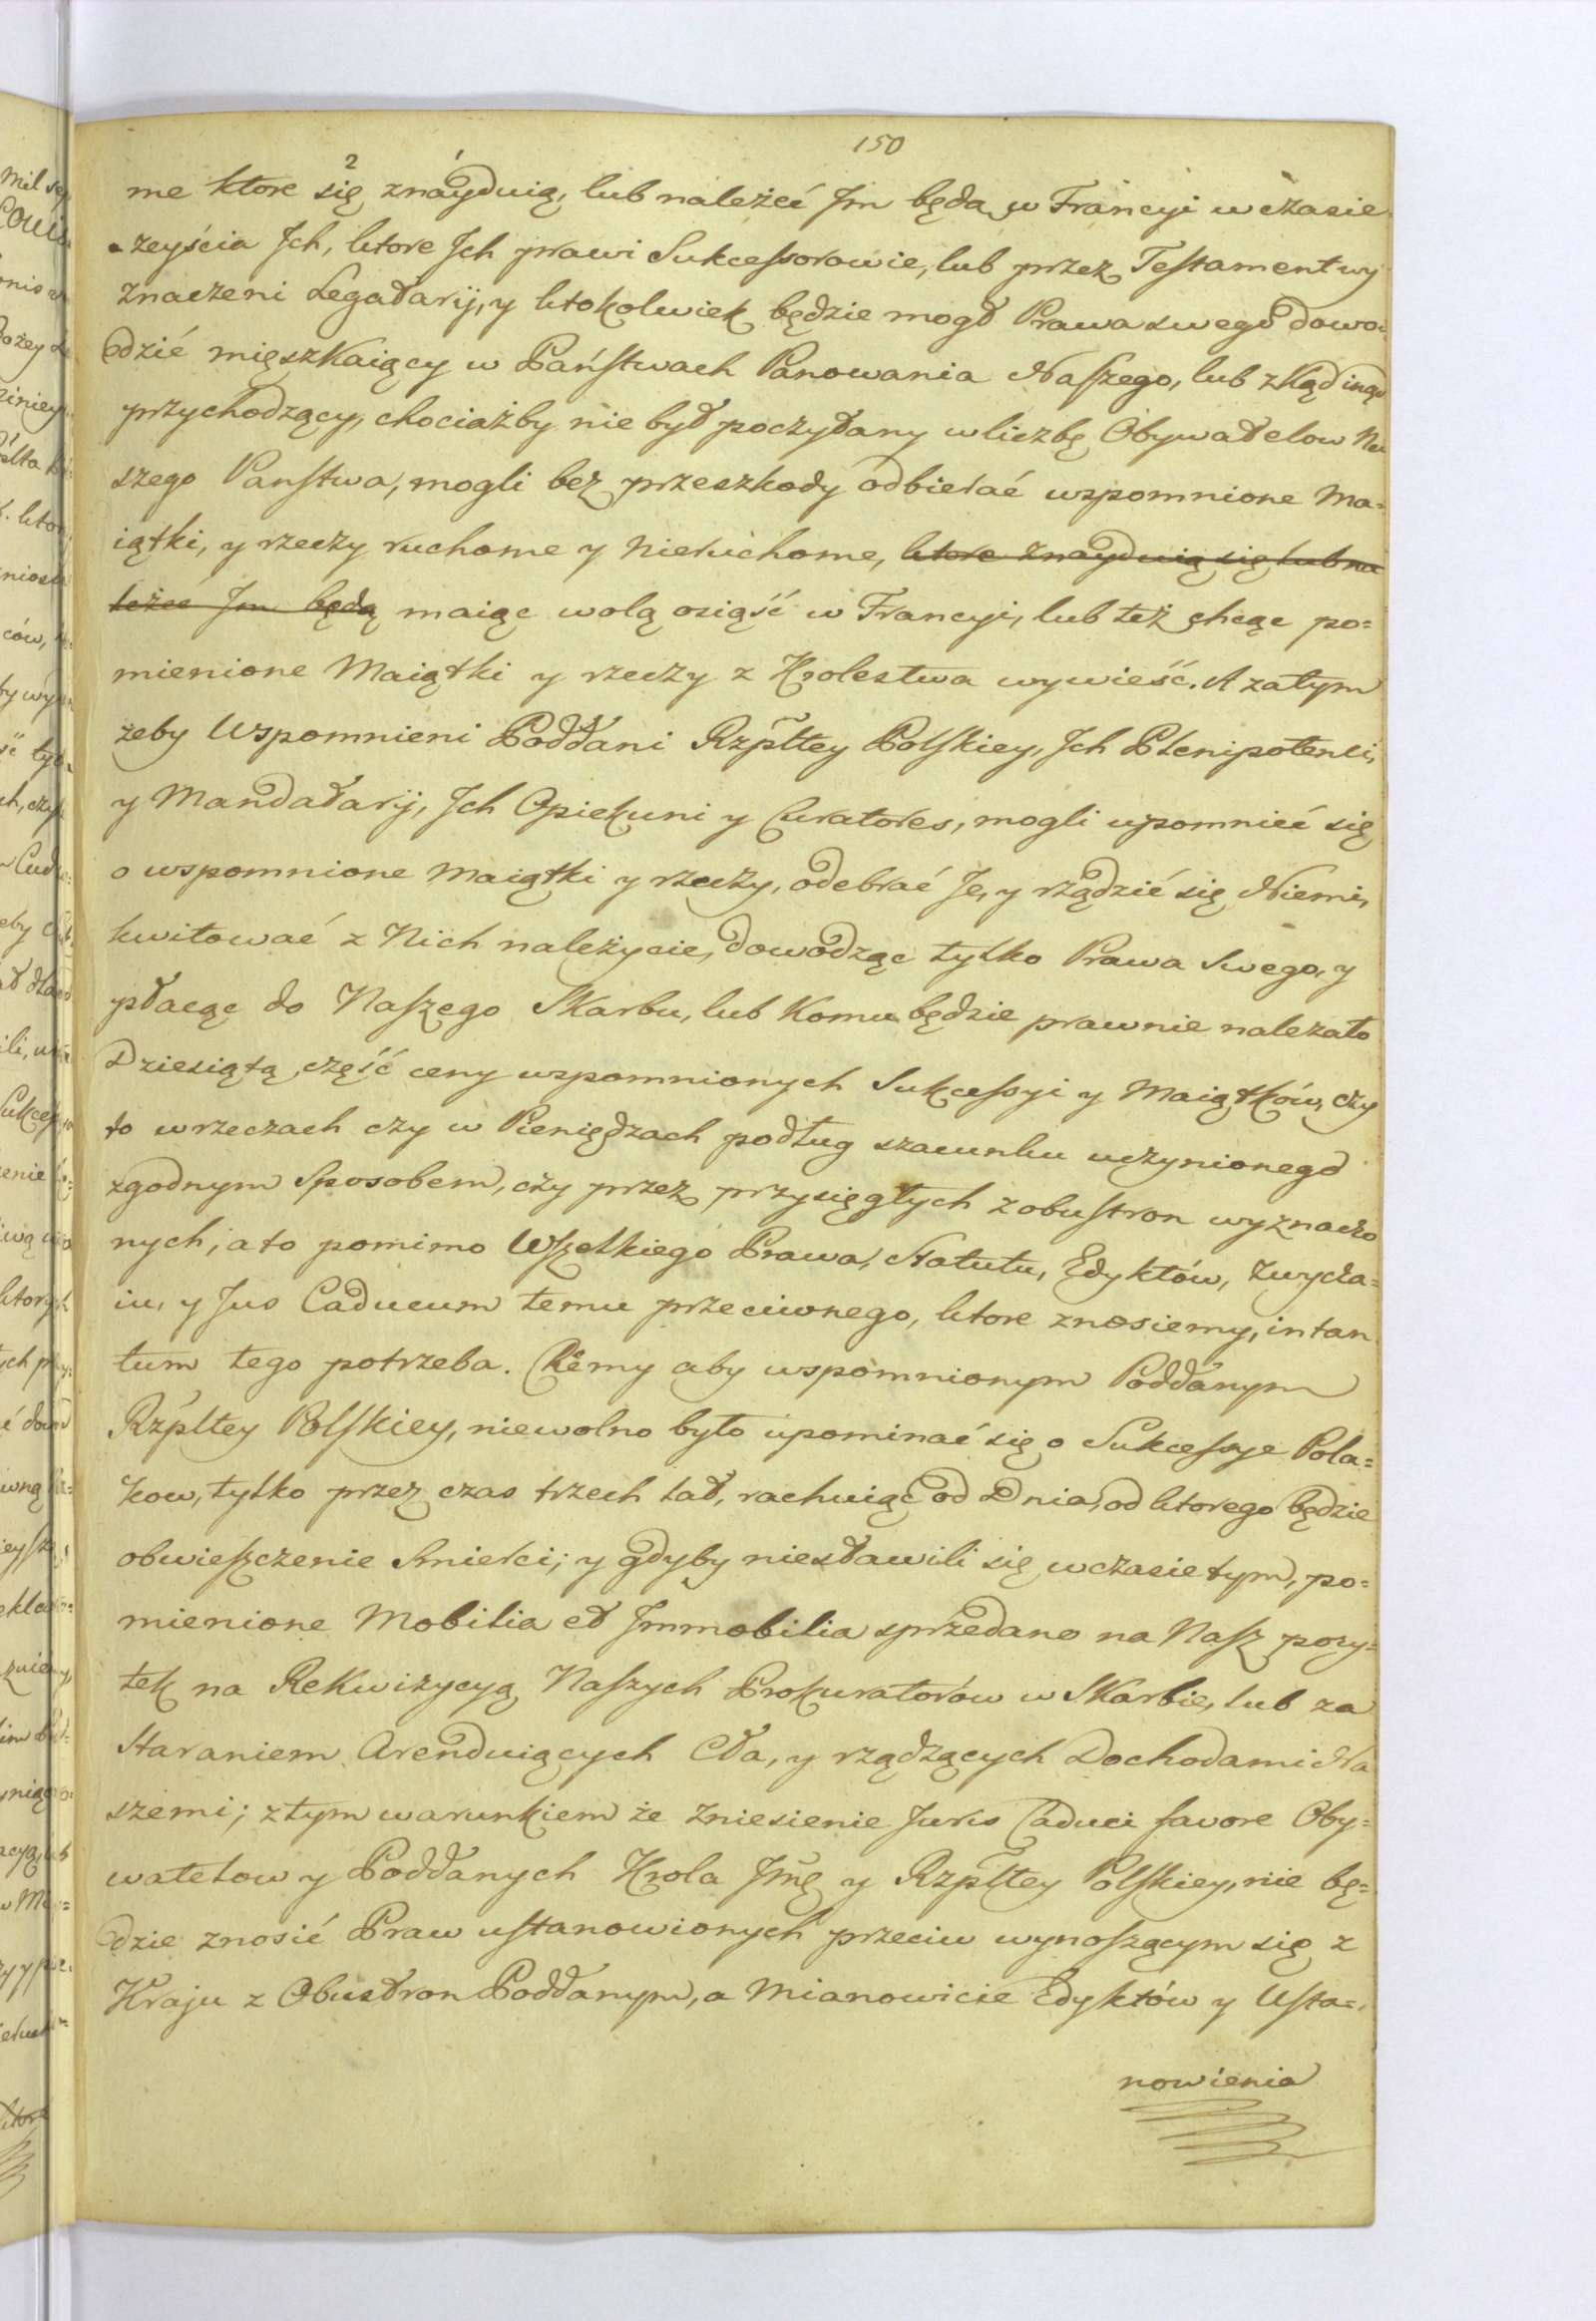 150
me ktore się znayduią, lub należeć Jm będą w Francyi w czasie
zeyścia Jch, ktore Jch prawi Sukcessorowie, lub przez Testament wy
znaczeni Legatarij, y ktokolwiek będzie mogł Prawa swego dowo-
dzić mięszkaiący w Państwach Panowania Naszego, lub zkąd inąd
przychodzący, chociażby nie był poczytany w liczbę Obywatelow Na
szego Panstwa, mogli bez przeszkody odbierać wspomnione Ma=
iątki, y rzeczy ruchome y nieruchome, ktore znayduią się lub na
leżeć Jm będą maiąc wolą osiąść w Francyi, lub też chcąc po=
mienione Maiątki y rzeczy z Krolestwa wywieść. A zatym
żeby Wspomnieni Poddani Rzpltey Polskiey, Jch Plenipotenci,
y Mandatarij, Jch Opiekuni y Curatores, mogli upomnieć się
o wspomnione Maiątki y rzeczy, odebrać Je, y rządzić się Niemi,
kwitować z Nich należycie, dowodząc tylko Prawa Swego, y
płacąc do Naszego Skarbu, lub Komu będzie prawnie nalezało
Dziesiątą część ceny wspomnionych Sukcessyi y Maiątków, czy
to w rzeczach czy w Pieniędzach podług szacunku uczynionego
zgodnym Sposobem, czy przez przysięgłych z obustron wyznaczo
nych, a to pomimo Wszelkiego Prawa, Statutu, Edyktów, Zwycza=
iu, y Jus Caducum temu przeciwnego, ktore znosiemy, in tan
tum tego potrzeba. Chcemy aby wspomnionym Poddanym
Rzpltey Polskiey, niewolno było upominać się o Sukcessye Pola=
kow, tylko przez czas trzech lat, rachuiąc od Dnia, od ktorego będzie
obwieszczenie Smierci; y gdyby niestawili się w czasie tym, po=
mienione Mobilia et Jmmobilia sprzedano na Nasz pozy=
tek na Rekwizycyą Naszych Prokuratorów w Skarbie, lub za
Staraniem Arenduiących Cła, y rządzących Dochodami Na
szemi; z tym warunkiem że Zniesienie Juris Caduci favore Oby=
watelow y Poddanych Krola Jmę y Rzpltey Polskiey, nie bę=
dzie znosić Praw ustanowionych przeciw wynoszącym się z
Kraju z Obustron Poddanym, a Mianowicie Edyktów y Usta=
nowienia